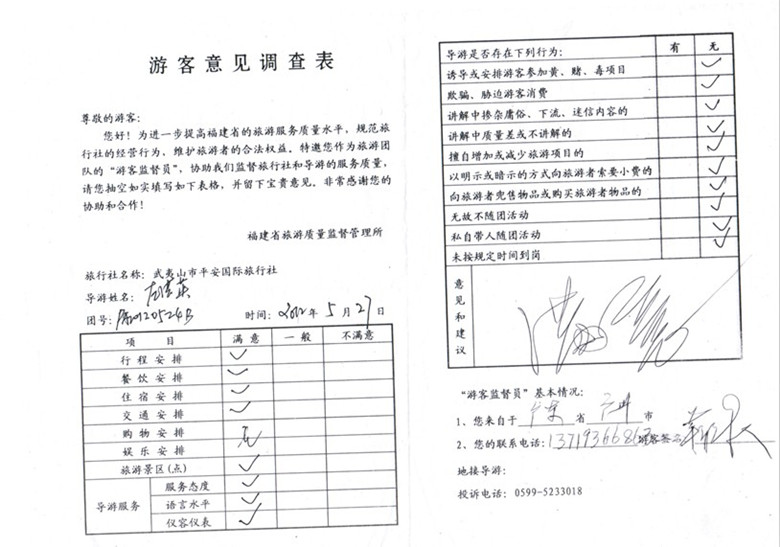 游客意见调查表
尊敬的游客：
您好！为进一步提高福建省的旅游服务质量水平，规范旅
行社的经营行为，维护旅游者的合法权益。特邀您作为旅游团
队的“游客监督员”，协助我们监督旅行社和导游的服务质量，
请您抽空如实填写如下表格，并留下宝贵意见。非常感谢您的
协助和合作！
福建省旅游质量监督管理所
旅行社名称：武夷山市平安国际旅行社
导游姓名：
团号： 时间：2012年5月27日
项 目 满意 一般 不满意
行程安排 ✓
餐饮安排 ✓
住宿安排 ✓
交通安排 ✓
购物安排 无
娱乐安排
旅游景区(点) ✓
导游服务 服务态度 ✓
语言水平 ✓
仪容仪表 ✓
导游是否存在下列行为： 有 无
诱导或安排游客参加黄、赌、毒项目 ✓
欺骗、胁迫游客消费 ✓
讲解中掺杂庸俗、下流、迷信内容的 ✓
讲解中质量差或不讲解的 ✓
擅自增加或减少旅游项目的 ✓
以明示或暗示的方式向旅游者索要小费的 ✓
向旅游者兜售物品或购买旅游者物品的 ✓
无故不随团活动 ✓
私自带人随团活动 ✓
未按规定时间到岗
意见和建议
“游客监督员”基本情况：
1、您来自于 广东 省 广州 市
2、您的联系电话：游客签名
地接导游：
投诉电话：0599-5233018